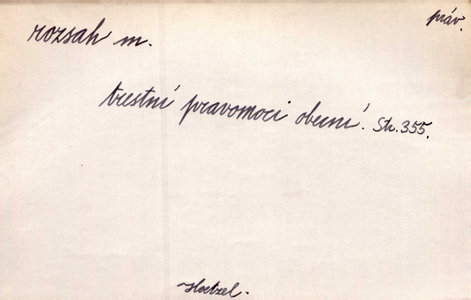 práv.
rozsah m.
trestní pravomoci obecní. Str. 355.
Hoetzel.